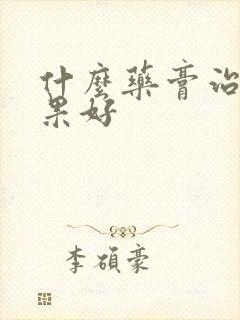 什麼藥膏治
果好
李碩豪